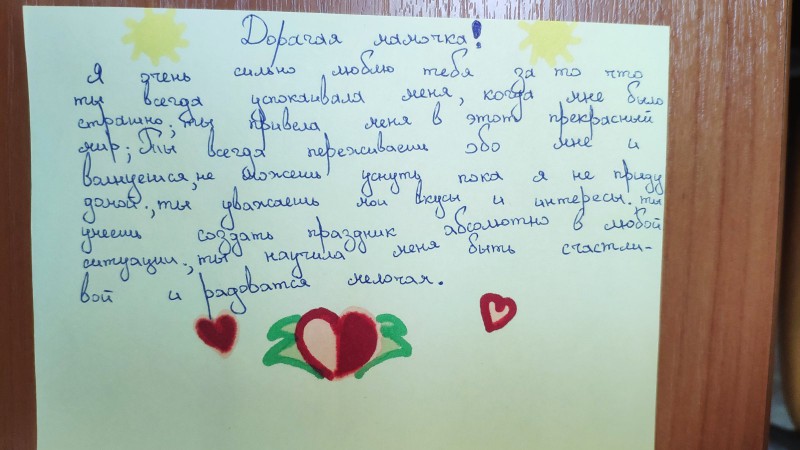 Дорагая мамочка!
Я очень сильно люблю тебя за то что
ты всегда успокаивала меня, когда мне было
страшно; ты привела меня в этот прекрасный
мир; Ты всегда переживаеш обо мне и
волнуешся, не можешь уснуть пока я не приду
домой; ты уважаешь мои вкусы и интересы; ты
умеешь создать праздник абсолютно в любой
ситуации; ты научила меня быть счастли-
вой и радоватся мелочам.